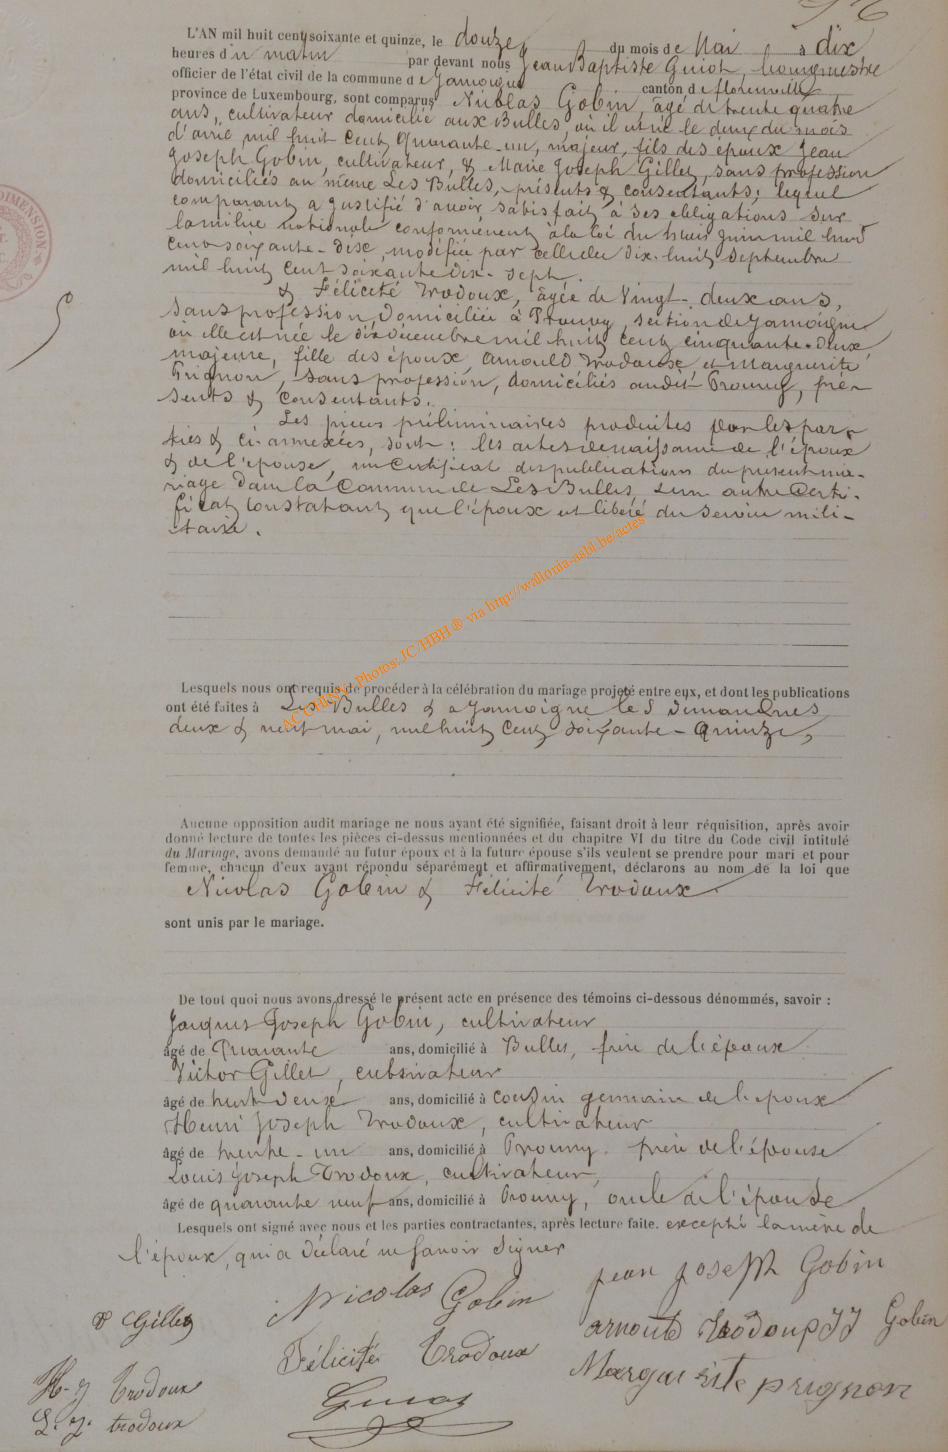 L'AN mil huit cent soixante et quinze, le douze du mois de Mai à dix
heures du matin par devant nous Jean Baptiste Guiot, bourgmestre
officier de l'état civil de la commune de Jamoigne canton de florenville
province de Luxembourg, sont comparus Nicolas Gobin, âgé de trente quatre
ans, cultivateur domicilié aux Bulles, où il est né le deux du mois
d'avril mil huit cent quarante-un, majeur, fils des époux Jean
Joseph Gobin, cultivateur, & Marie Joseph Gillet, sans profession
domiciliés au même Les Bulles, présents & consentants; lequel
comparant a justifié d'avoir satisfait à ses obligations sur
la milice nationale conformément à la loi du juin mil huit
cent soixante-dix, modifiée par celle du dix-huit Septembre
mil huit cent soixante dix-sept.
& Félicité Trodoux, âgée de Vingt-deux ans,
Sans profession, Domiciliée à Prouvy, section de Jamoigne
où elle est née le dix Décembre mil huit cent cinquante-deux
majeure, fille des époux Arnould Trodoux et Marguerite
Prignon, sans profession, domiciliés audit Prouvy, pré-
sents & Consentants.
Les pièces préliminaires produites par les par-
ties & ci-annexées, sont: les actes de naissance de l'époux
& de l'épouse, un Certificat des publications du présent ma-
riage dans la Commune de Les Bulles, & un autre Certi-
ficat Constatant que l'époux est libéré du Service mili-
taire.
AC CHINY, Photos: JC/HBH ® via http://wallonia-asbl.be/actes
Lesquels nous ont requis de procéder à la célébration du mariage projeté entre eux, et dont les publications
ont été faites à Les Bulles & a Jamoigne les dimanches
deux & neuf mai, mil huit Cent Soixante-Quinze,
Aucune opposition audit mariage ne nous ayant été signifiée, faisant droit à leur réquisition, après avoir
donné lecture de toutes les pièces ci-dessus mentionnées et du chapitre VI du titre du Code civil intitulé
du Mariage, avons demandé au futur époux et à la future épouse s'ils veulent se prendre pour mari et pour
femme, chacun d'eux ayant répondu séparément et affirmativement, déclarons au nom de la loi que
Nicolas Gobin & Félicité Trodoux
sont unis par le mariage.
De tout quoi nous avons dressé le présent acte en présence des témoins ci-dessous dénommés, savoir :
Jacques Joseph Gobin, cultivateur
âgé de Quarante ans, domicilié à Bulles, frère de l'époux
Victor Gillet, cultivateur
âgé de deux ans, domicilié à cousin germain de l'époux
Henri Joseph Trodoux, cultivateur
âgé de trente-un ans, domicilié à Prouvy. frère de l'épouse
Louis Joseph Trodoux, cultivateur,
âgé de quarante neuf ans, domicilié à Prouvy, oncle de l'épouse
Lesquels ont signé avec nous et les parties contractantes, après lecture faite. excepté la mère de
l'époux, qui a déclaré ne savoir Signer
Nicolas Gobin jean joseph Gobin
V Gillet arnould trodoux JJ Gobin
Félicité Trodoux Marguerite prignon
H-J Trodoux
L. J. trodoux Guiot